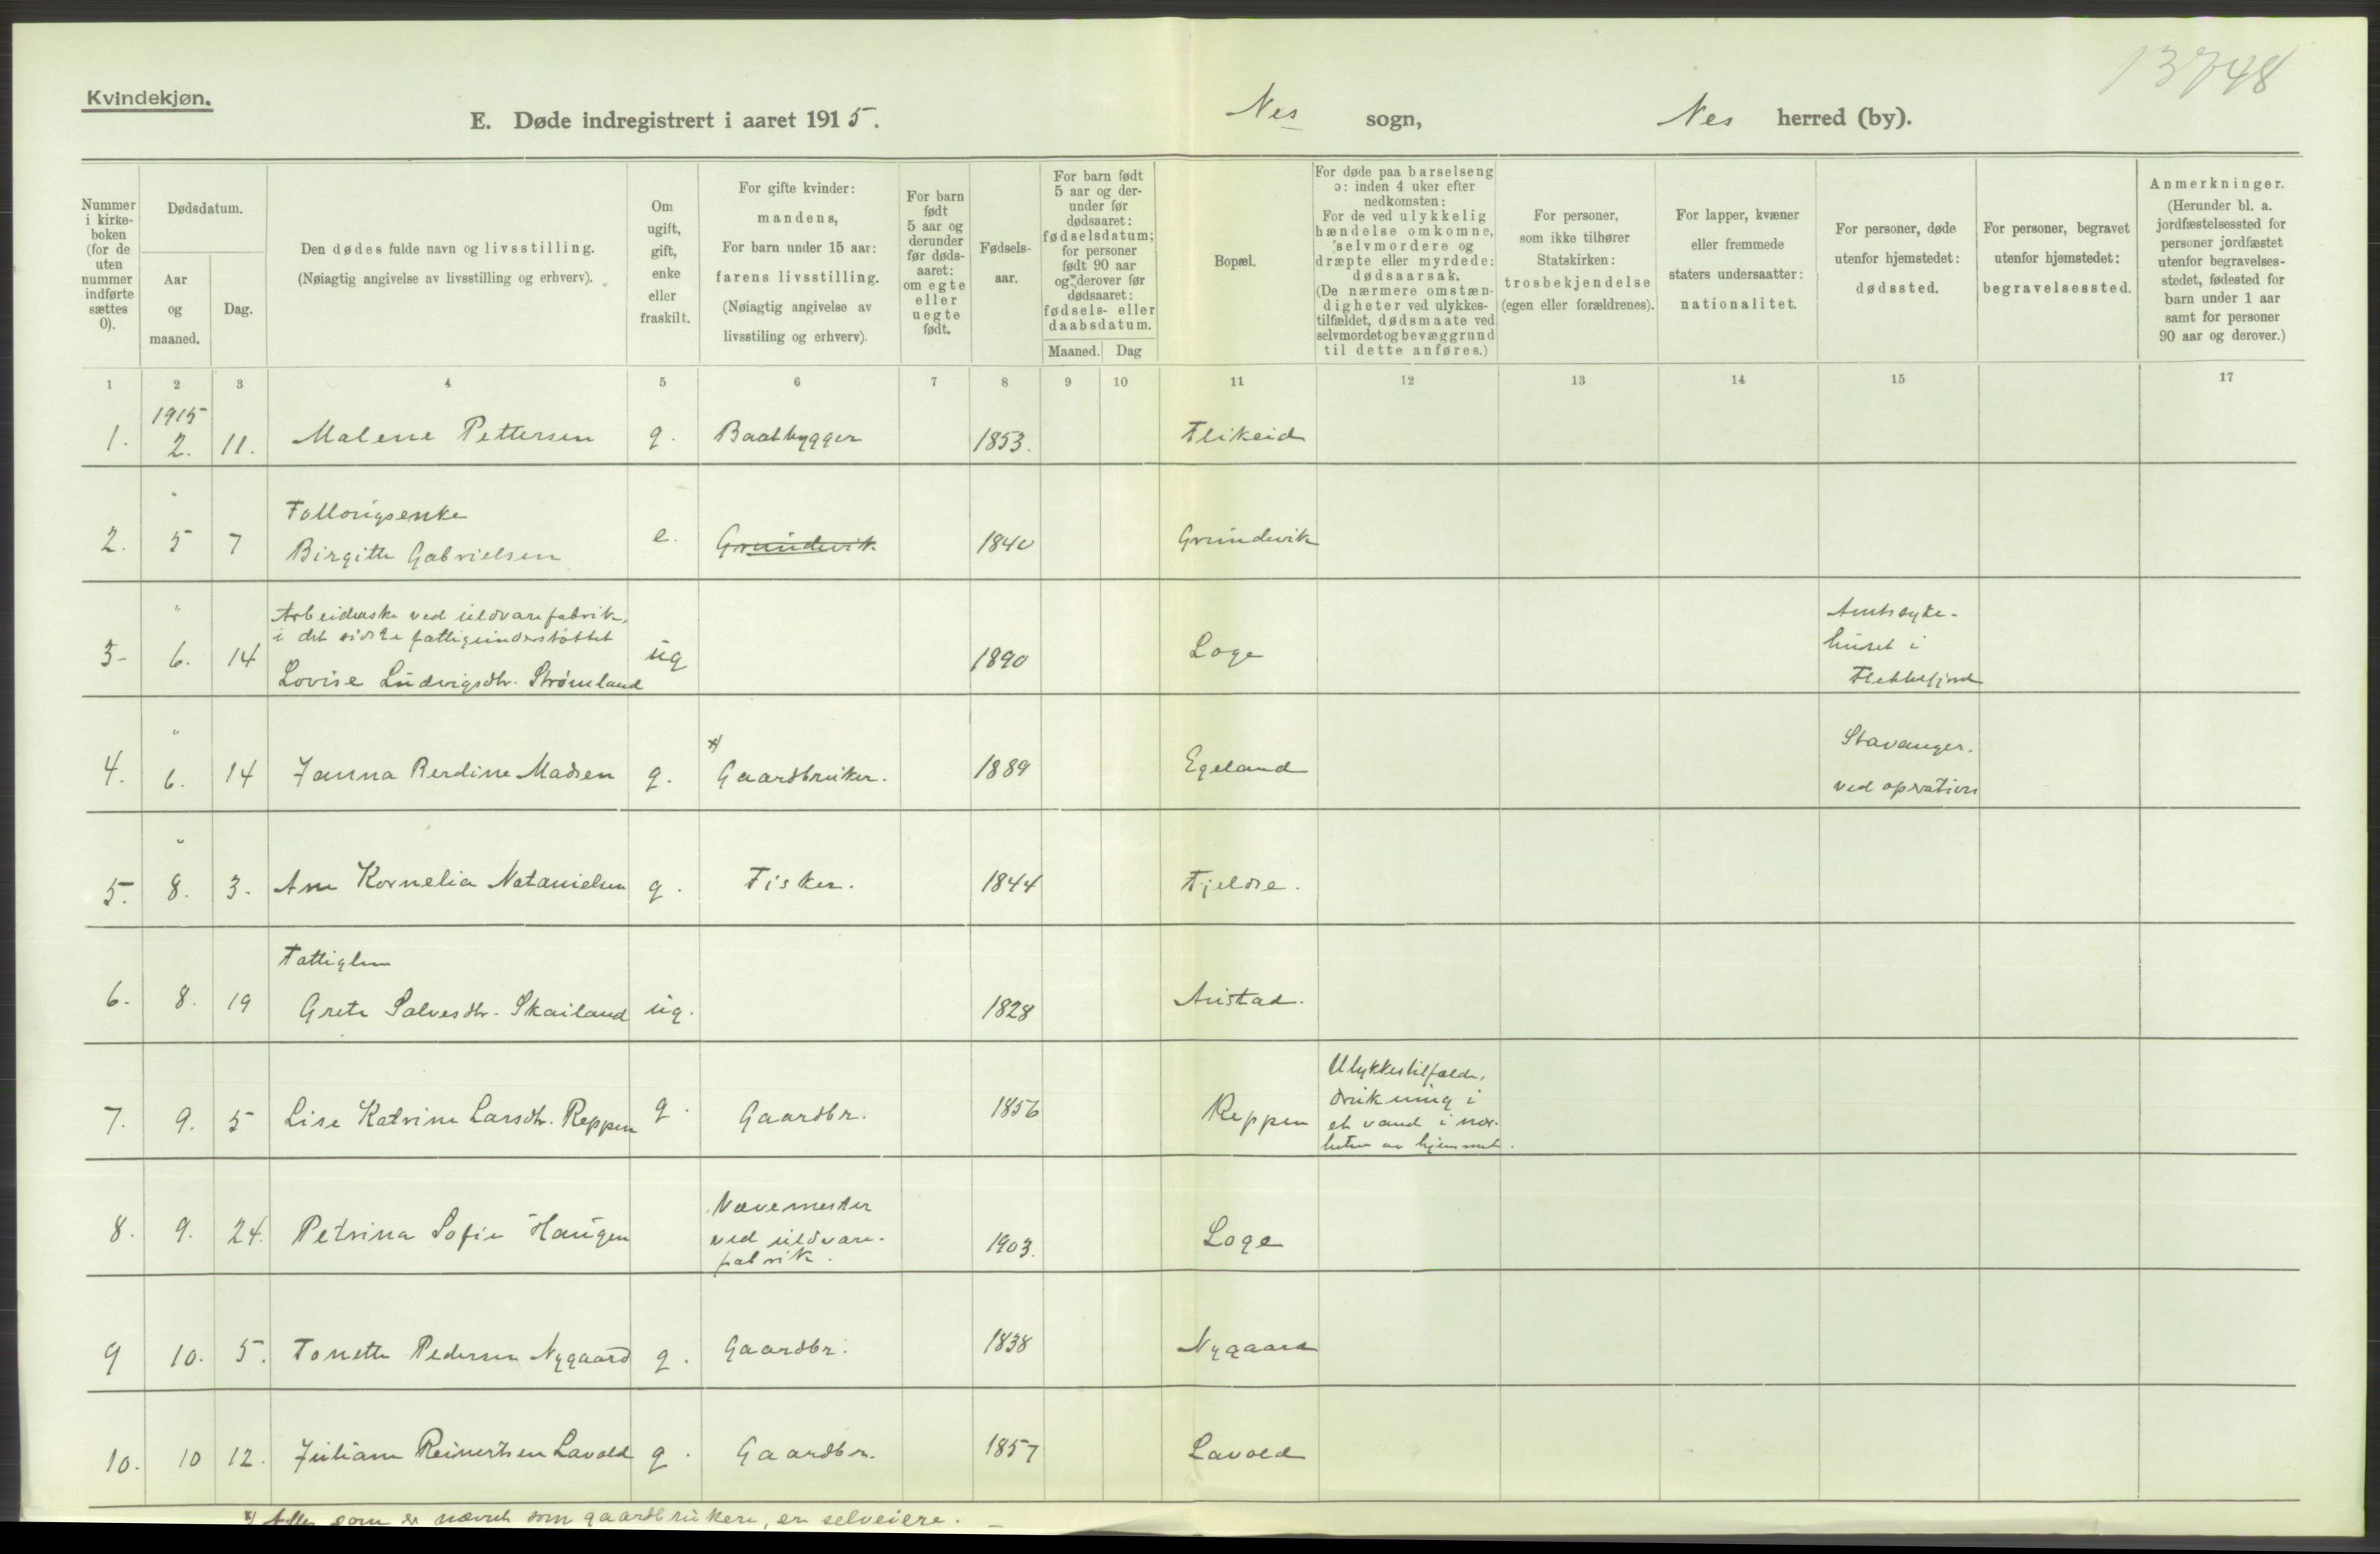 13748
Kvindekjøn.
E. Døde indregistrert i aaret 1915. Nes sogn, Nes herred (by).
Nummer i kirke-boken (for de uten nummer indførte sættes 0).
Dødsdatum.
Aar og maaned.
Dag.
Den dødes fulde navn og livsstilling.
(Nøiagtig angivelse av livsstilling og erhverv).
Om ugift, gift, enke eller fraskilt.
For gifte kvinder: mandens, For barn under 15 aar: farens livsstilling. (Nøiagtig angivelse av livsstiling og erhverv).
For barn født 5 aar og derunder før døds-aaret: om egte eller uegte født.
Fødsels-aar.
For barn født 5 aar og der-under før dødsaaret: fødselsdatum; for personer født 90 aar og derover før dødsaaret: fødsels- eller daabsdatum.
Maaned. Dag
Bopæl.
For døde paa barselseng ɔ: inden 4 uker efter nedkomsten: For de ved ulykkelig hændelse omkomne, selvmordere og dræpte eller myrdede: dødsaarsak. (De nærmere omstæn-digheter ved ulykkes-tilfældet, dødsmaate ved selvmordet og bevæggrund til dette anføres.)
For personer, som ikke tilhører Statskirken: trosbekjendelse (egen eller forældrenes).
For lapper, kvæner eller fremmede staters undersaatter: nationalitet.
For personer, døde utenfor hjemstedet: dødssted.
For personer, begravet utenfor hjemstedet: begravelsessted.
Anmerkninger. (Herunder bl. a. jordfæstelsessted for personer jordfæstet utenfor begravelses-stedet, fødested for barn under 1 aar samt for personer 90 aar og derover.)
1 2 3 4 5 6 7 8 9 10 11 12 13 14 15 17
1915
1. 2. 11. Malene Pettersen g. Baatbygger 1853. Flikeid
"
Fattigenke
2. 5 7 Birgitte Gabrielsen e. Grundevik 1840 Grundevik
"
Arbeiderske ved uldvarefabrik,
i det sidste fattigunderstøttet
3- 6. 14 Lovise Ludvigsdtr. Strømland ug 1890 Loge Amtssyke-
huset i
Flekkefjord
"
4. 6. 14 Janna Berdine Madsen g. x) Gaardbruker. 1889 Egeland Stavanger.
ved opration
"
5. 8. 3. Ane Kornelia Natanielsen g. Fisker. 1844 Fjeldse.
Fattiglem
6. 8. 19 Grete Salvesdtr. Skailand ug. 1828 Austad.
7. 9. 5 Lise Katrine Larsdtr. Reppen g. Gaardbr. 1856 Reppen Ulykkestilfælde,
drukning i
et vand i nær-
heten av hjemmet.
8. 9. 24. Petrina Sofie Haugen Vævemester
ved uldvare-
fabrik. 1903. Loge
9 10. 5. Tonette Pedersen Nygaard g. Gaardbr. 1838 Nygaard
10. 10 12. Juliane Reinertsen Lavold g. Gaardbr. 1857 Lavold
x) Alle som er nævnt som gaardbrukere, er selveiere.